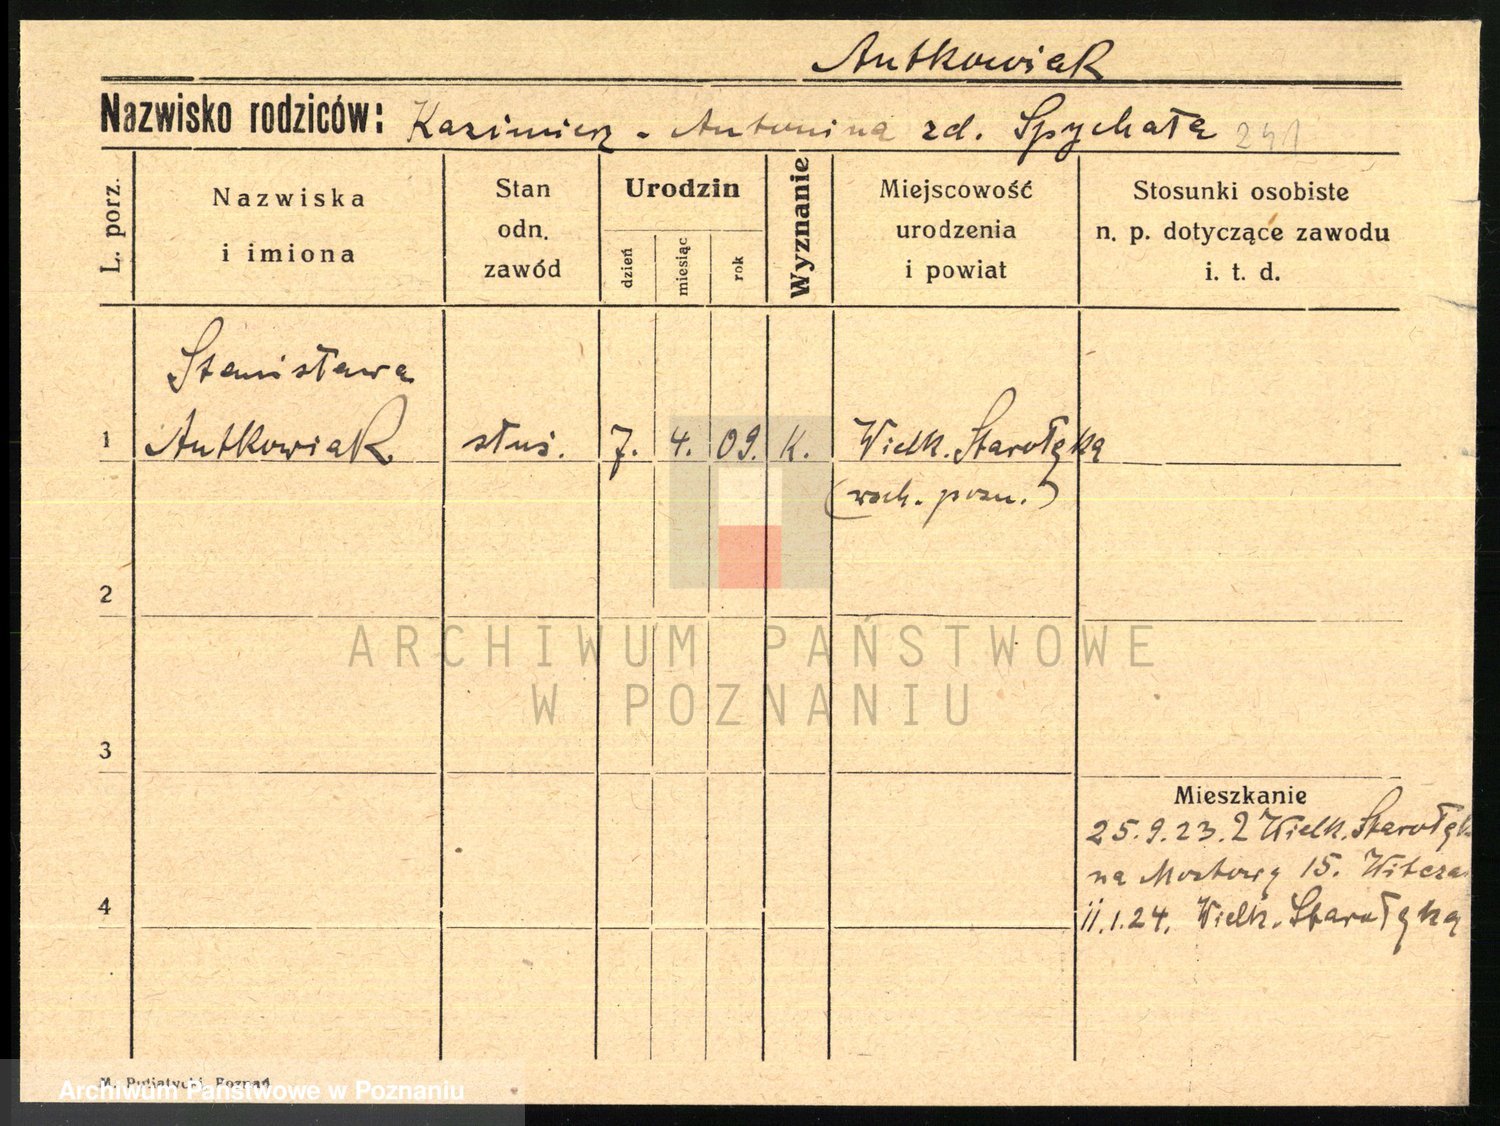 Antkowiak
Nazwisko rodziców: Kazimierz - Antonina zd. Spychała 241
L. porz.
Nazwiska
i imiona
Stan
odn.
zawód
Urodzin
dzień
miesiąc
rok
Wyznanie
Miejscowość
urodzenia
i powiat
Stosunki osobiste
n. p. dotyczące zawodu
i. t. d.
Stanisława
1 Antkowiak służ. 7. 4. 09. K. Wielk. Starołęka
(wsch. pozn.)
2
ARCHIWUM PAŃSTWOWE
W POZNANIU
3
Mieszkanie
25.9.23. Z Wielk. Starołęk
na Mostową 15. Witcza
4 11.1.24. Wielk. Starołęka
M. Putiatycki, Poznań
Archiwum Państwowe w Poznaniu